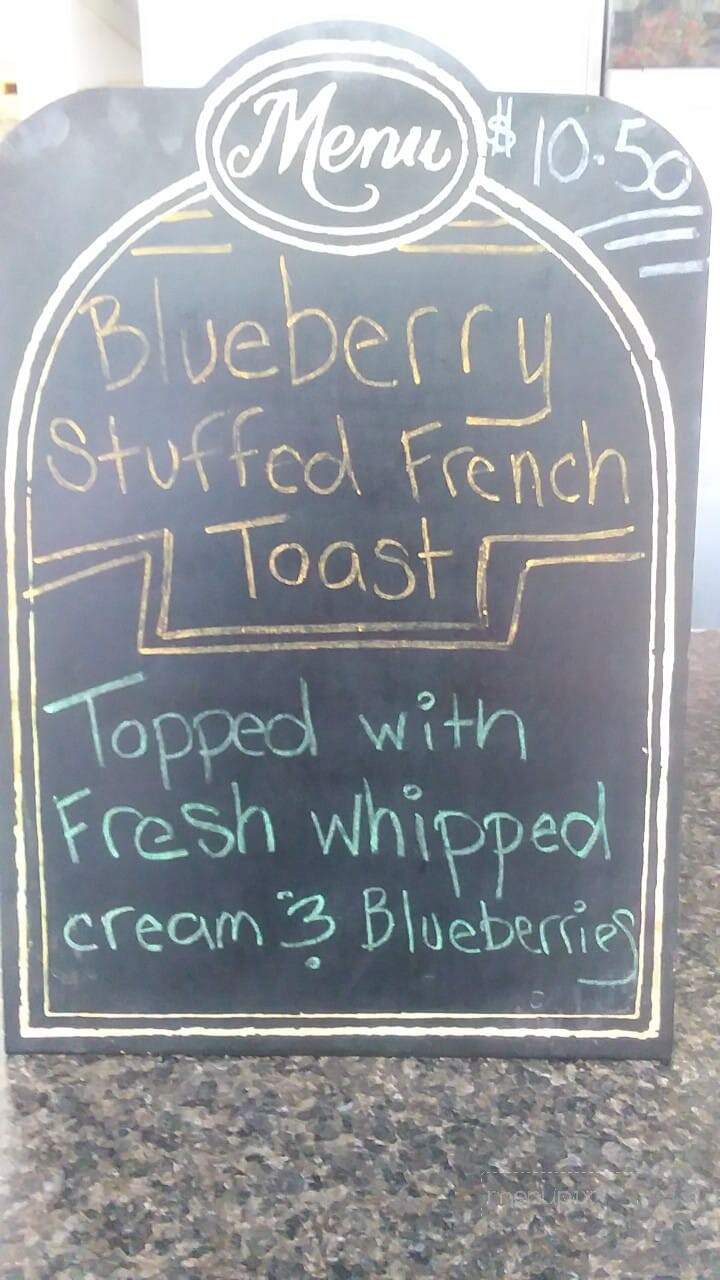 Menu
$10.50
Blueberry
Stuffed French
Toast
Topped with
Fresh whipped
cream & Blueberries
menupix